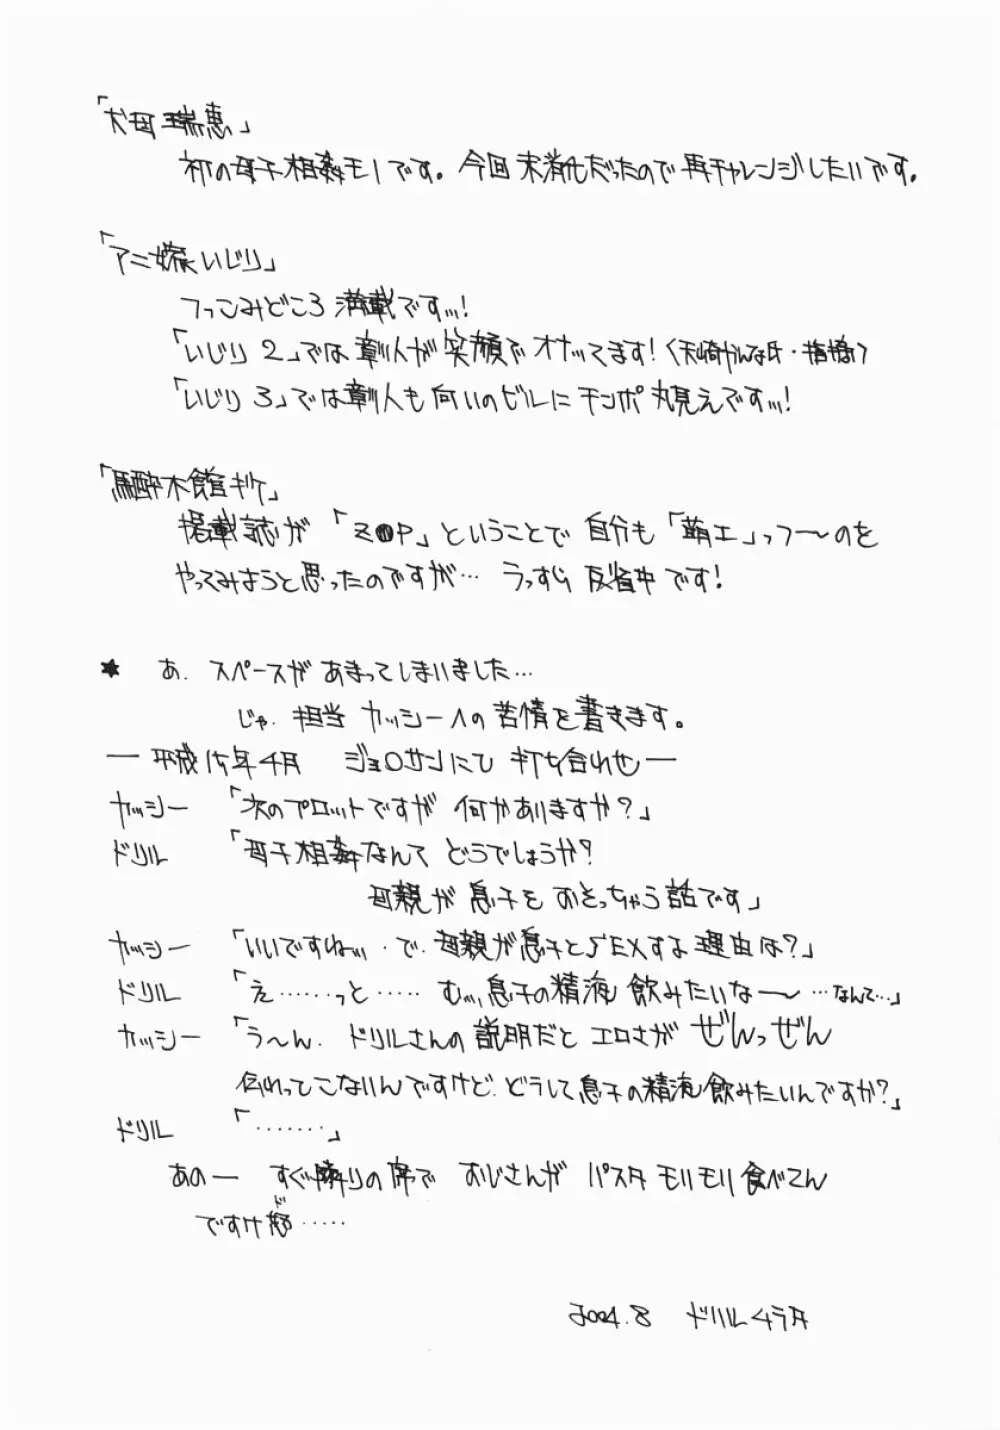 「犬母瑞恵」
初の母子相姦モノです。今回未消化だったので再チャレンジしたいです。
「アニ嫁いじり」
つっこみどころ満載ですッ!
「いじり2」では彰人が笑顔でオナってます!(天崎かんな氏・指摘)
「いじり3」では彰人も向いのビルにチンポ丸見えですッ!
「馬酔木館ギケ」
掲載誌が「Z●P」ということで自分も「萌エ」っつ〜のを
やってみようと思ったのですが… うっすら反省中です!
★ あ、スペースがあまってしまいました…
じゃ、担当カッシーへの苦情を書きます。
― 平成16年4月 ジョロサンにて 打ち合わせ ―
カッシー 「次のプロットですが 何かありますか?」
ドリル 「母子相姦なんて どうでしょうか?
母親が息子を おそっちゃう話です」
カッシー 「いいですねッ・で、母親が息子とSEXする理由は?」
ドリル 「え……っと…… むッ、息子の精液飲みたいな〜…なんて…」
カッシー 「う〜ん、ドリルさんの説明だと エロさが ぜんっぜん
伝わってこないんですけど、どうして息子の精液飲みたいんですか?」
ドリル 「………」
あのー すぐ隣りの席で おじさんが パスタ モリモリ食べてん
ですけど……
2004.8 ドリルムラタ